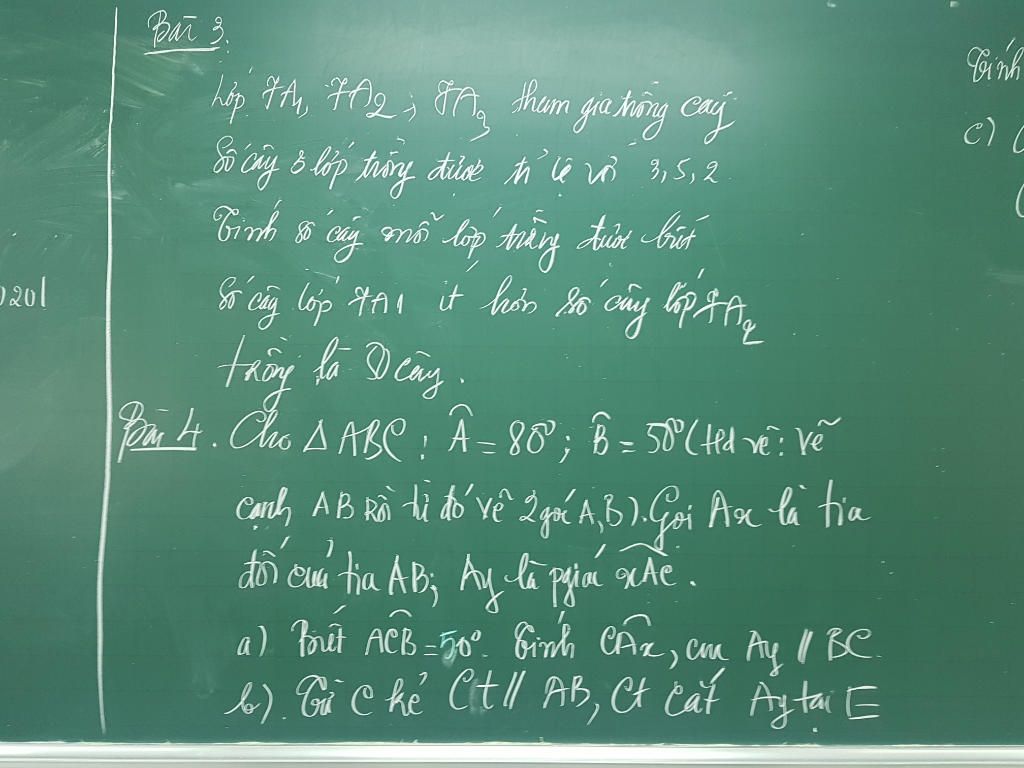 Bài 3.
Lớp 7A1, 7A2, 7A3 tham gia trồng cây
Số cây 3 lớp trồng được tỉ lệ với 3, 5, 2
Tính số cây mỗi lớp trồng được biết
Số cây lớp 7A1 ít hơn số cây lớp 7A2
trồng là cây.
Bài 4. Cho △ABC: Â = 80°; B̂ = 50° (Hd vẽ: Vẽ
cạnh AB rồi từ đó vẽ 2 góc A, B). Gọi Ax là tia
đối của tia AB; Ay là pgiác xAC.
a) Biết ACB = 50°. Tính CAx, cm Ay // BC.
b). Từ C kẻ Ct // AB, Ct cắt Ay tại E
Tính
c)
0201